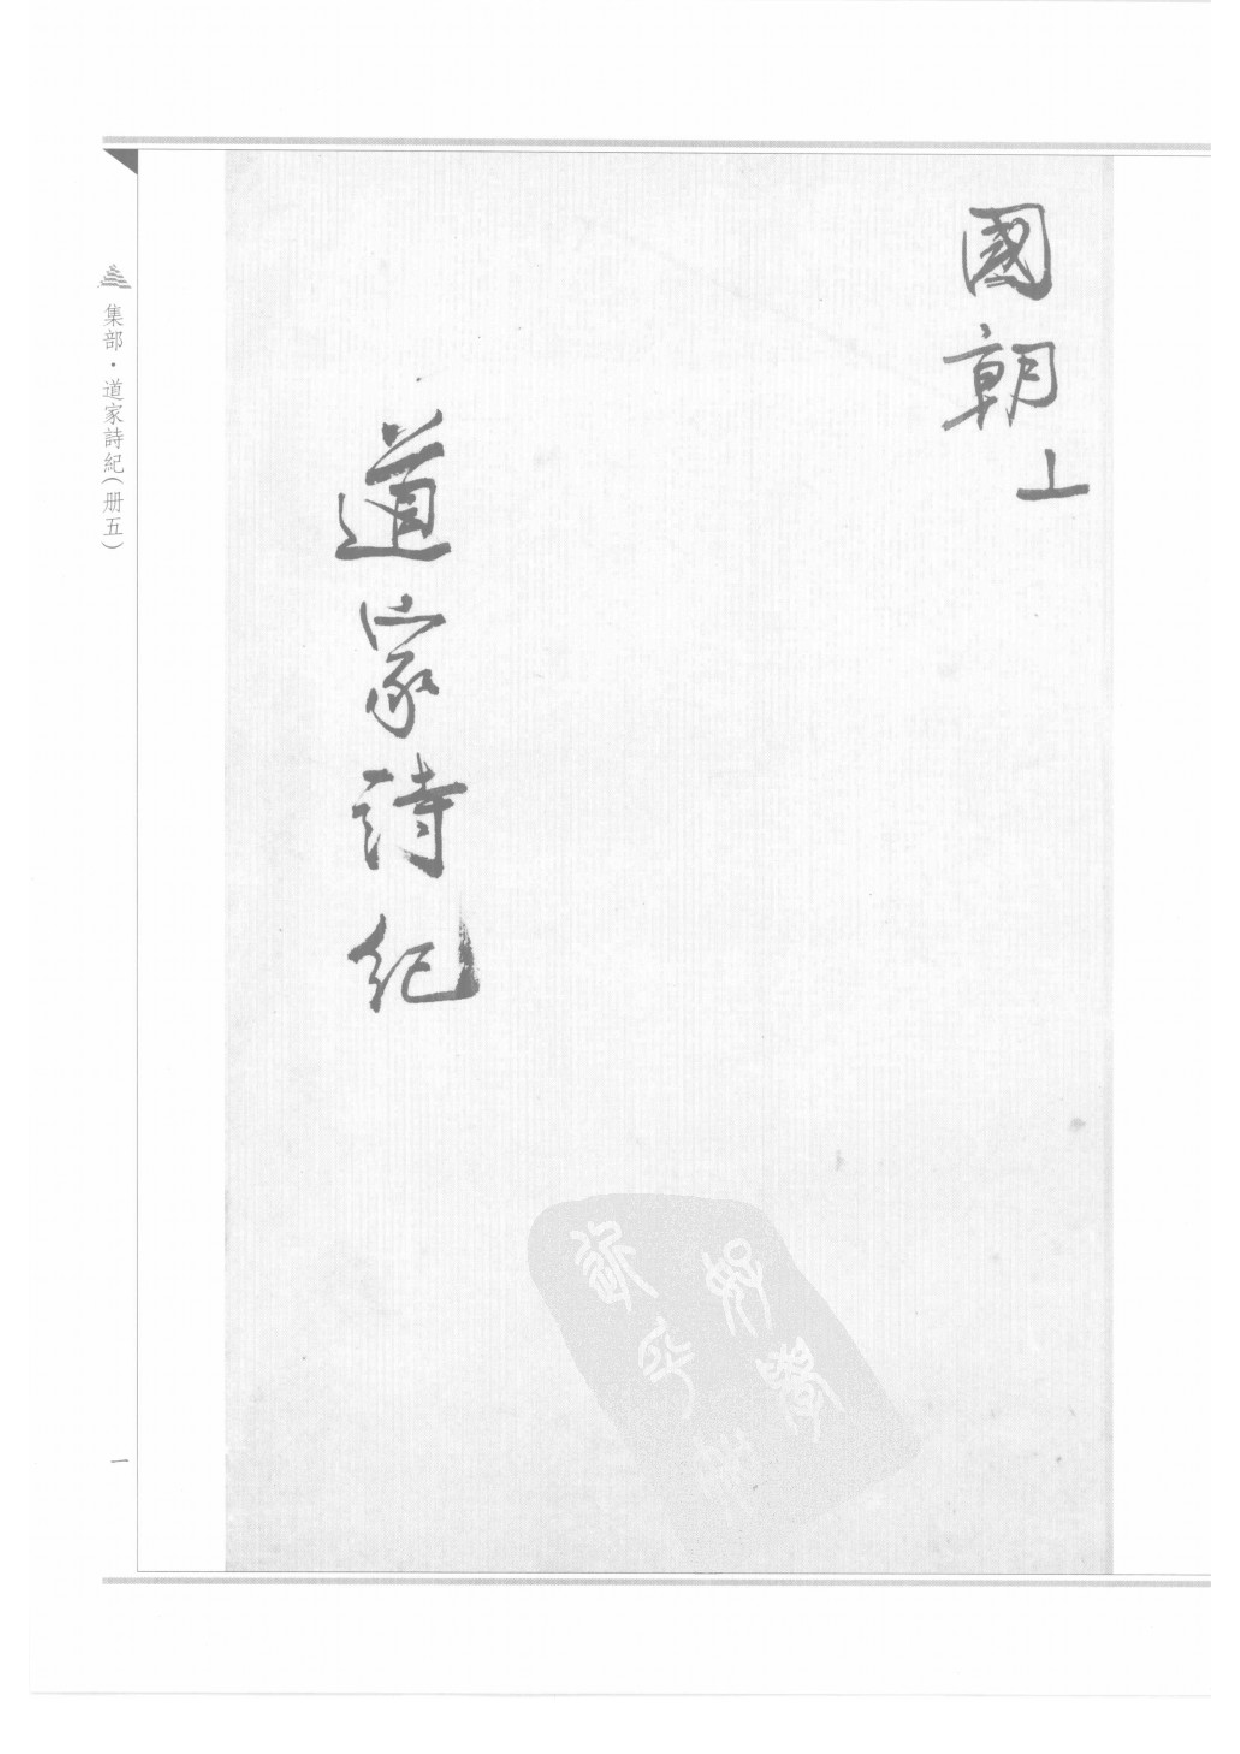 國朝上
道家詩紀
集部·道家詩紀(册五)
一